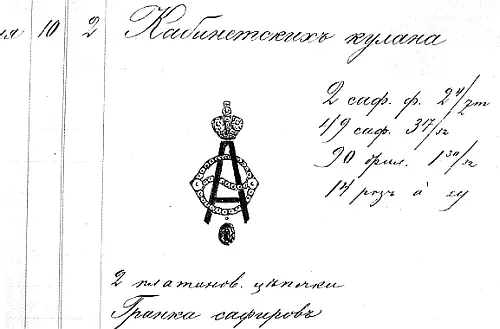 ня 10 2 Кабинетскихъ кулана
2 саф. ф. 2 4/зт
49 саф. 3 17/32
90 брил. 1 30/32
14 розъ à
2 платинов. цѣпочки
Гранка сафировъ